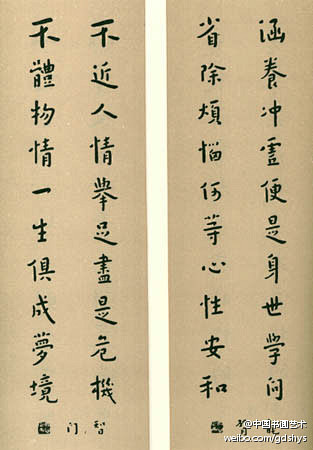 涵養冲虚便是身世学问
省除煩惱何等心性安和
不近人情舉足盡是危機
不體物情一生俱成夢境
智
门
@中国书画艺术
weibo.com/gdshys